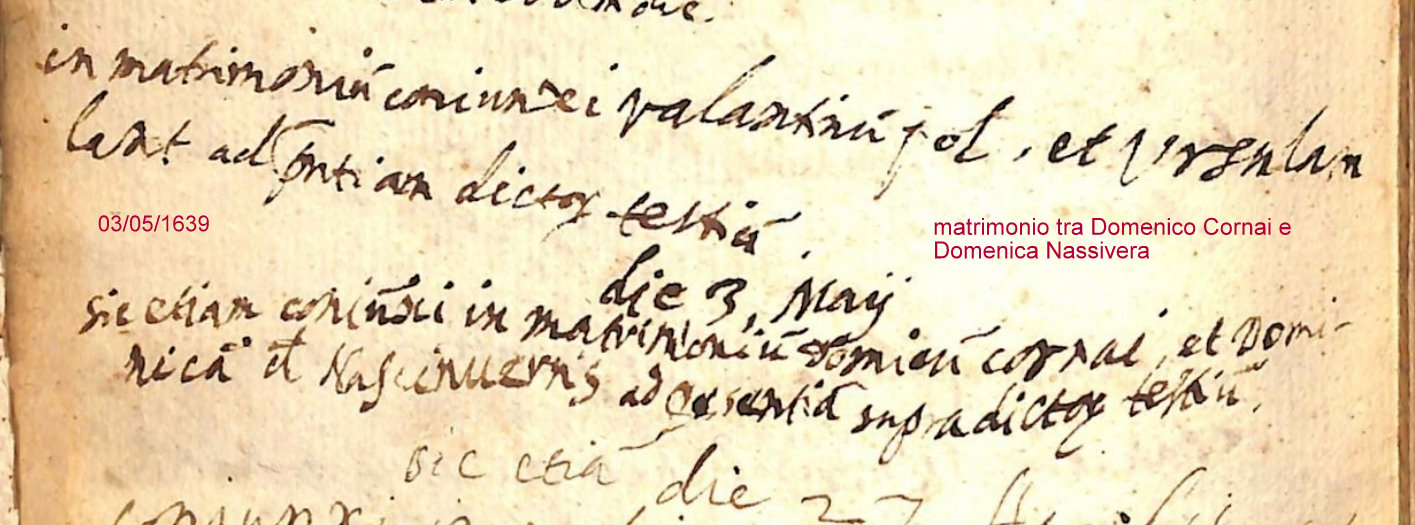 in matrimoniū coniunxi valantinū pol, et Vrsulam
lant ad pntiam dictoꝝ testiū
03/05/1639
matrimonio tra Domenico Cornai e
Domenica Nassivera
die 3, Maij
sic etiam coniūxi in matrimoniū domicū cornai, et Domi-
nicā Nascinuernis ad presentiā supradictoꝝ testiū.
sic etiā die 27